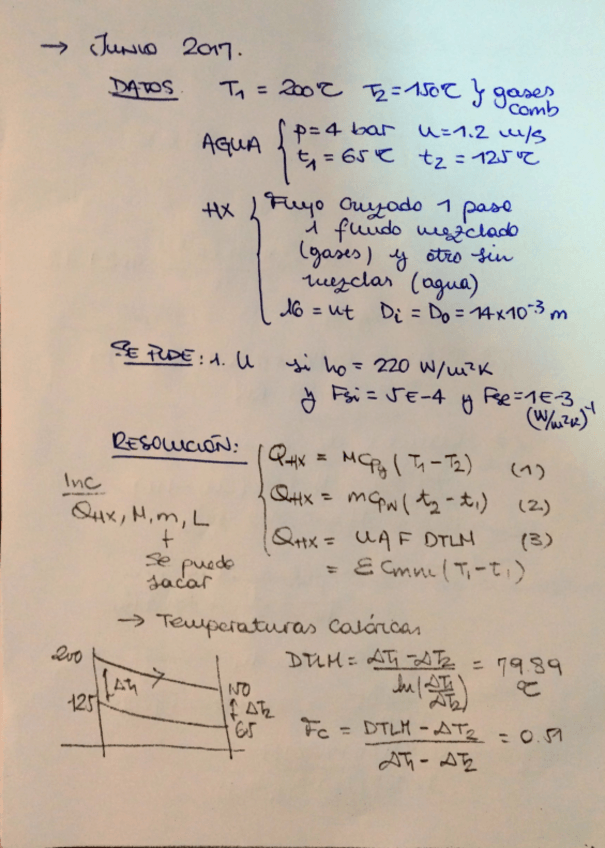 → JUNIO 2017.
DATOS T₁ = 200℃ T₂ = 150℃ } gases
comb
AGUA { p = 4 bar u = 1.2 m/s
t₁ = 65℃ t₂ = 125℃
HX { Flujo cruzado 1 paso
1 fluido mezclado
(gases) y otro sin
mezclar (agua)
16 = nt Di = Do = 14×10⁻³ m
SE PIDE: 1. U si ho = 220 W/m²K
y Fsi = 5E-4 y Fse = 1E-3
(W/m²K)⁻¹
RESOLUCIÓN:
Inc
Q_HX, M, m, L
+
Se puede
sacar
{ Q_HX = M Cpg (T₁ - T₂) (1)
Q_HX = m Cpw (t₂ - t₁) (2)
Q_HX = U A F DTLM (3)
= ε Cmın (T₁ - t₁)
→ Temperaturas Calóricas
200
125
ΔT₁
150
ΔT₂
65
DTLM = (ΔT₁ - ΔT₂) / ln(ΔT₁/ΔT₂) = 79.89
℃
Fc = (DTLM - ΔT₂) / (ΔT₁ - ΔT₂) = 0.51